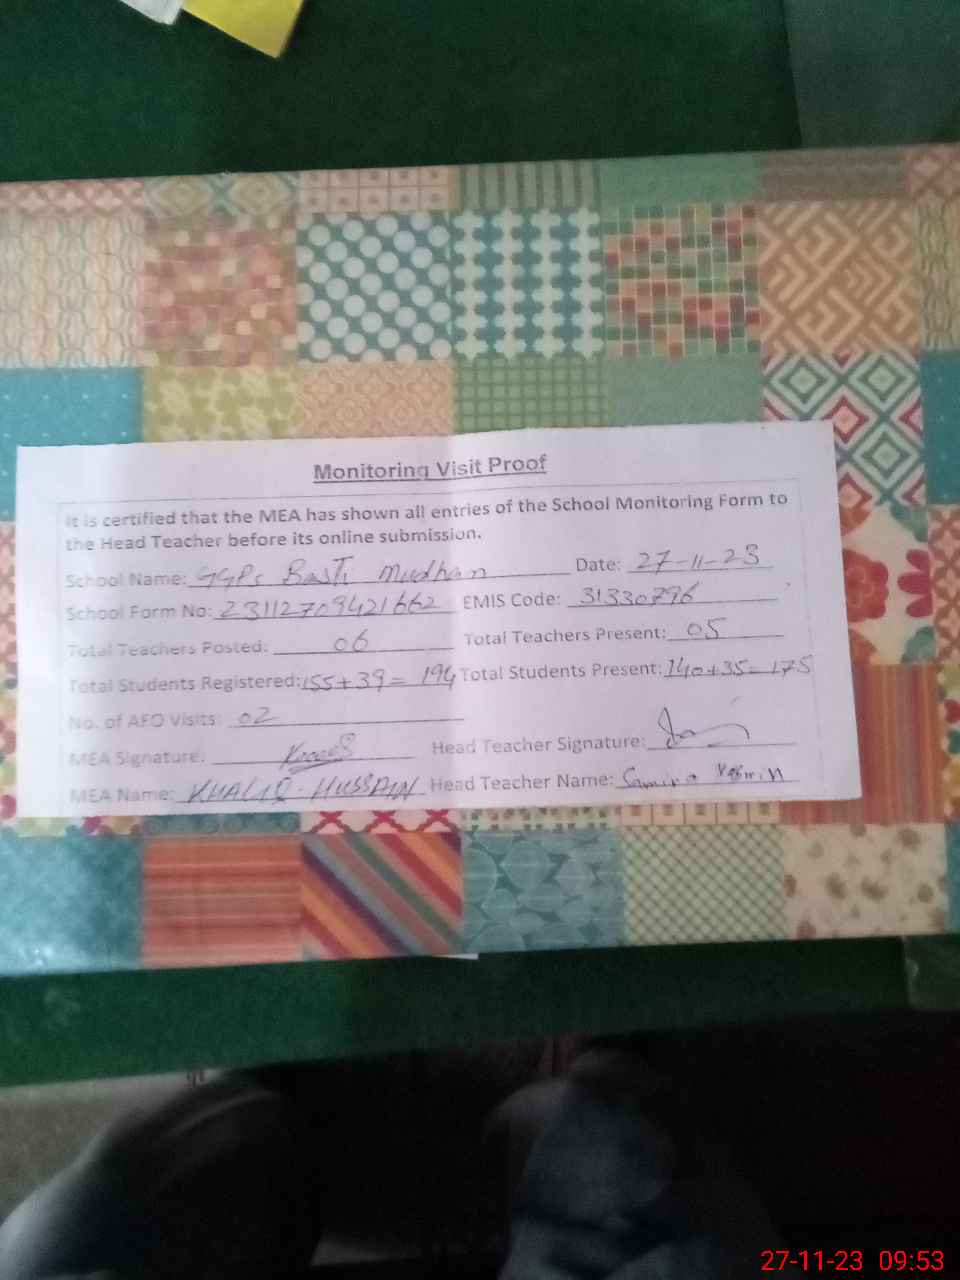 Monitoring Visit Proof
It is certified that the MEA has shown all entries of the School Monitoring Form to
the Head Teacher before its online submission.
School Name: GGPS Basti Mudhan Date: 27-11-23
School Form No: 23112709421662 EMIS Code: 31330796
Total Teachers Posted: 06 Total Teachers Present: 05
Total Students Registered: 155+39= 194 Total Students Present: 140+35=175
No. of AEO Visits: 02
MEA Signature: Head Teacher Signature:
MEA Name: KHALIQ-HUSSAIN Head Teacher Name: Samira Yasmin
27-11-23 09:53